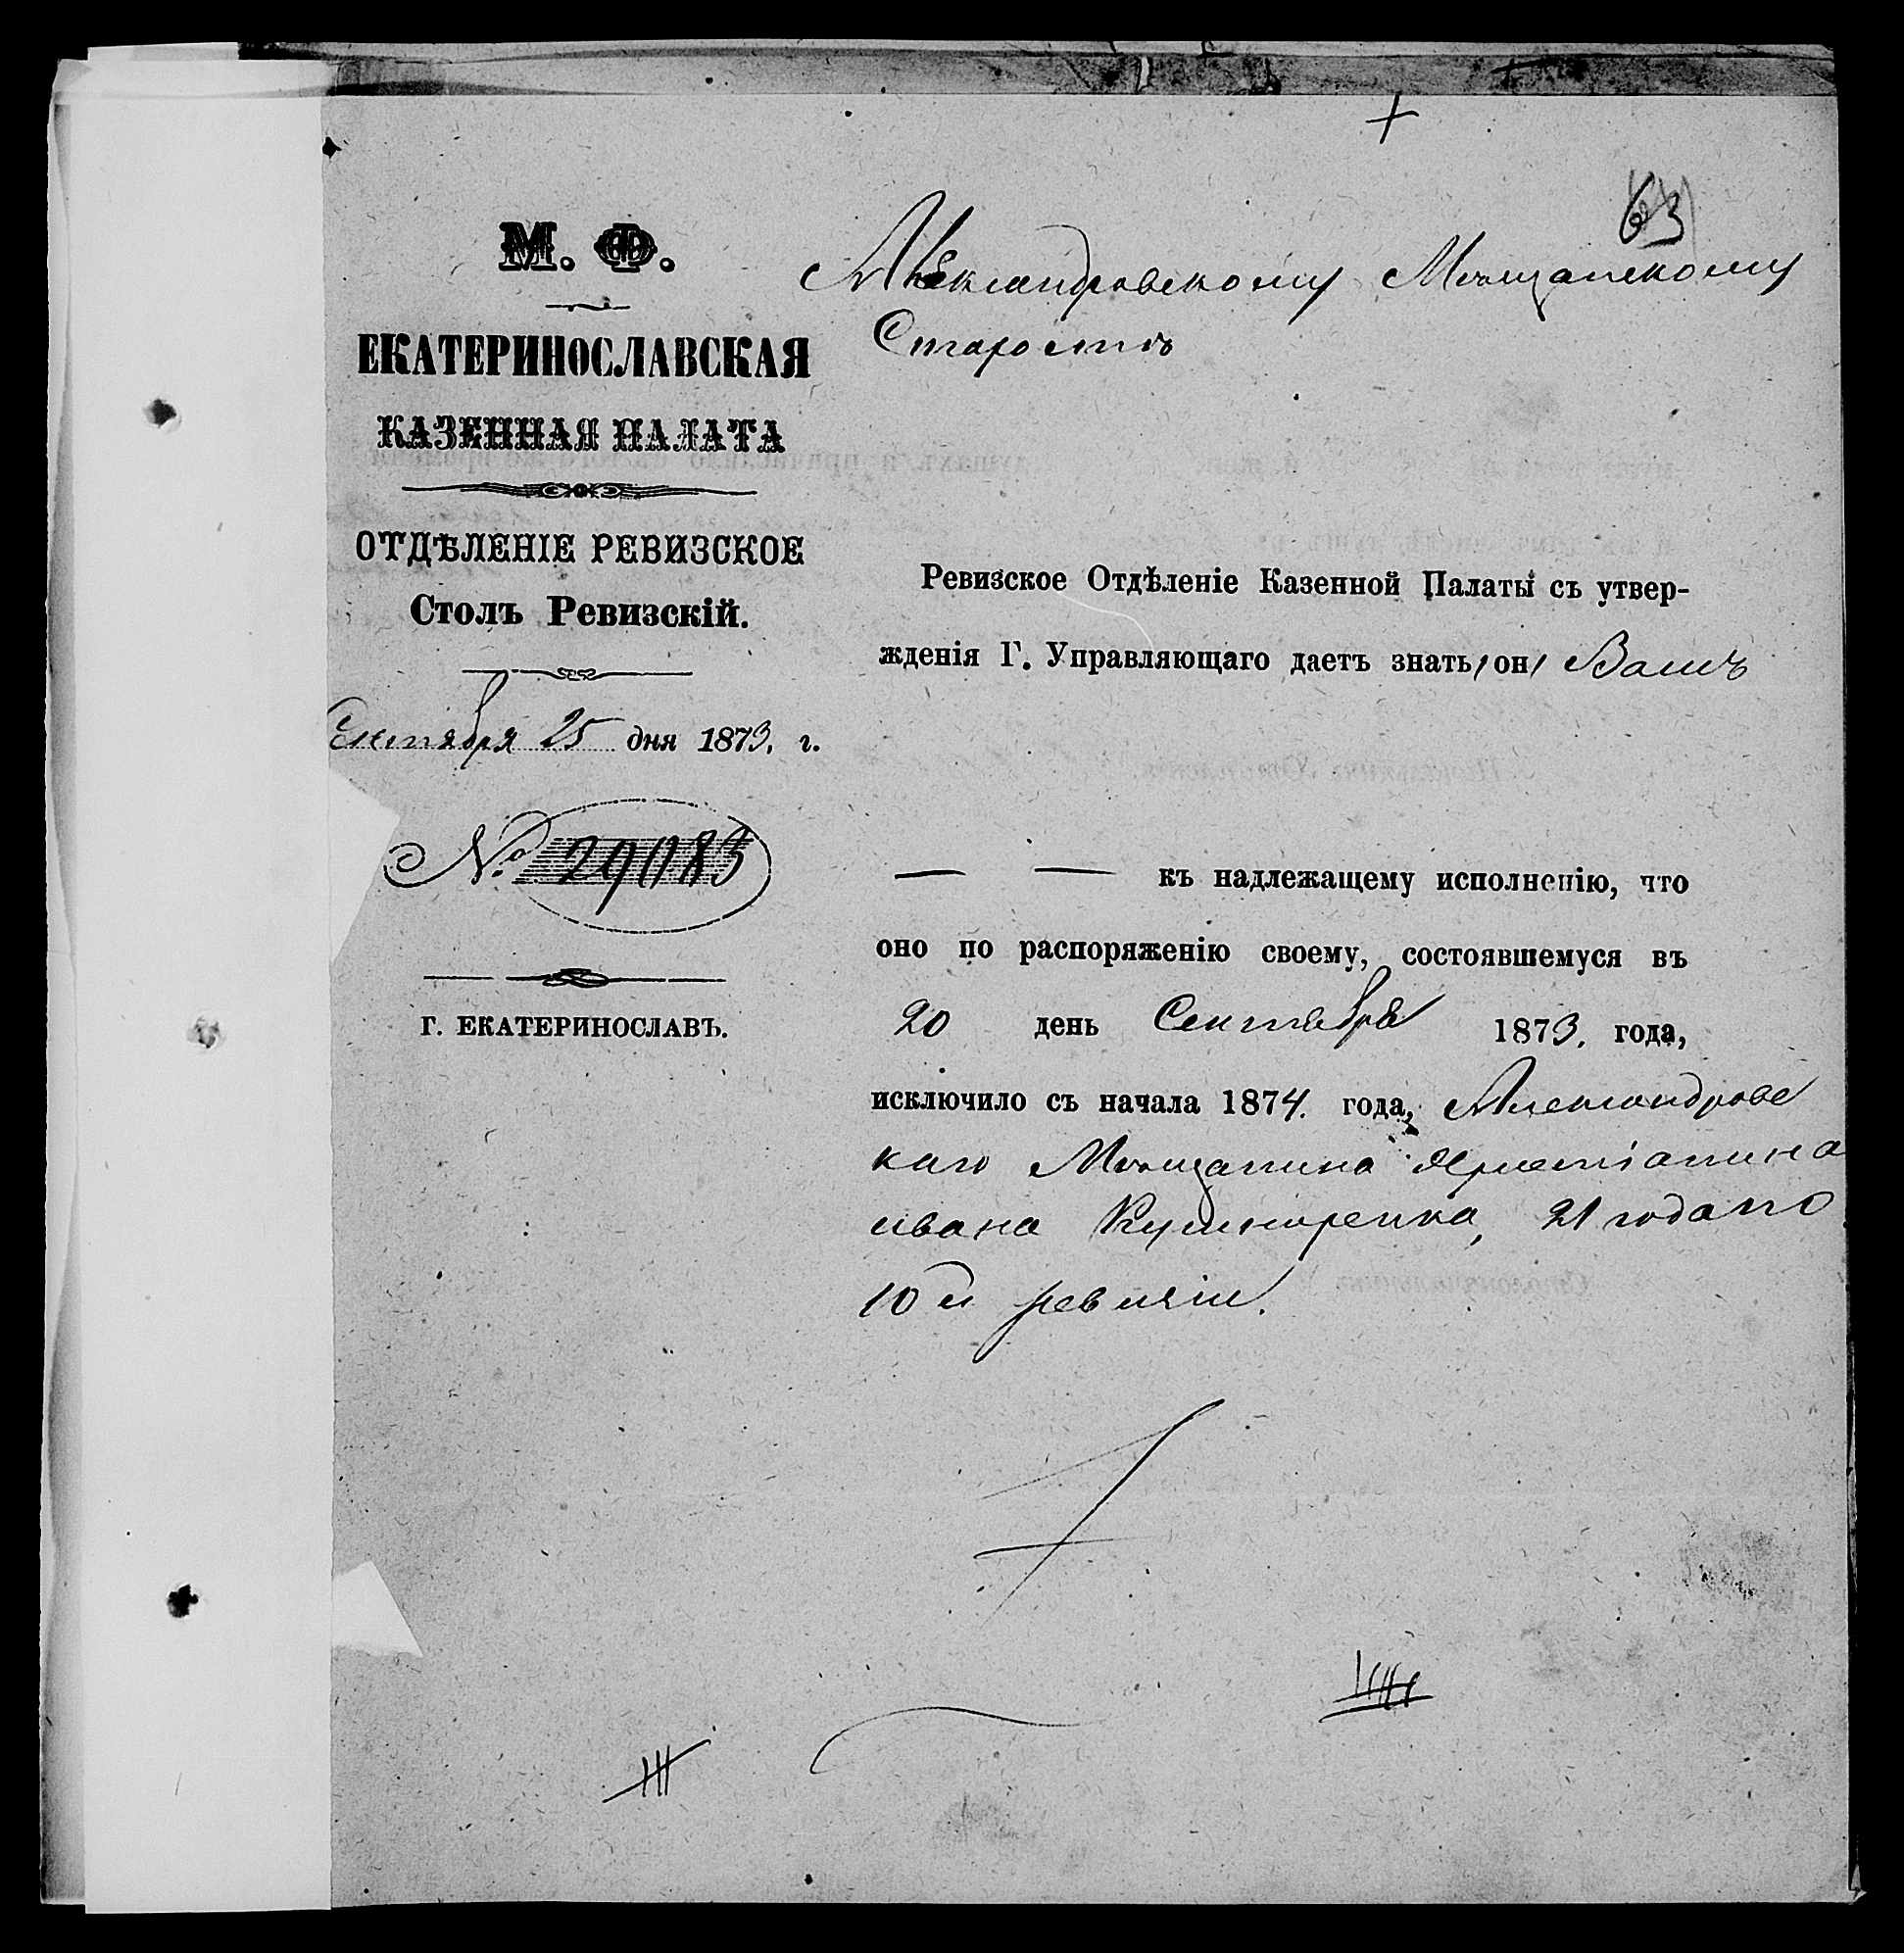 63
М. Ф.
ЕКАТЕРИНОСЛАВСКАЯ
КАЗЕННАЯ ПАЛАТА
ОТДѢЛЕНІЕ РЕВИЗСКОЕ
Столъ Ревизскій.
Сентября 25 дня 1873. г.
№ 29083
Г. ЕКАТЕРИНОСЛАВЪ.
Александровскому Мѣщанскому
Старостѣ
Ревизское Отдѣленіе Казенной Палаты съ утвер-
жденія Г. Управляющаго даетъ знать, он, Вамъ
къ надлежащему исполненію, что
оно по распоряженію своему, состоявшемуся въ
20 день Сентября 1873. года,
исключило съ начала 1874. года, Александровс
каго Мѣщанина
ивана Кушниренка, 21 года по
10й ревизіи.